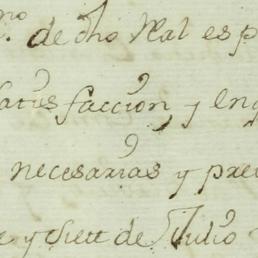 no de dho Rl esp
satisfaccion, y en
necesarias y pre
e y siete de Julio